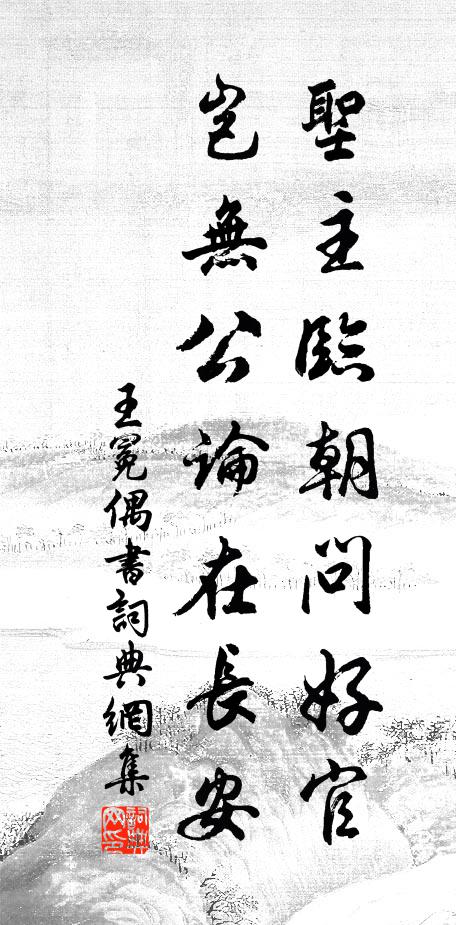 聖主臨朝問好官
豈無公論在長安
王冕偶書詞典網集